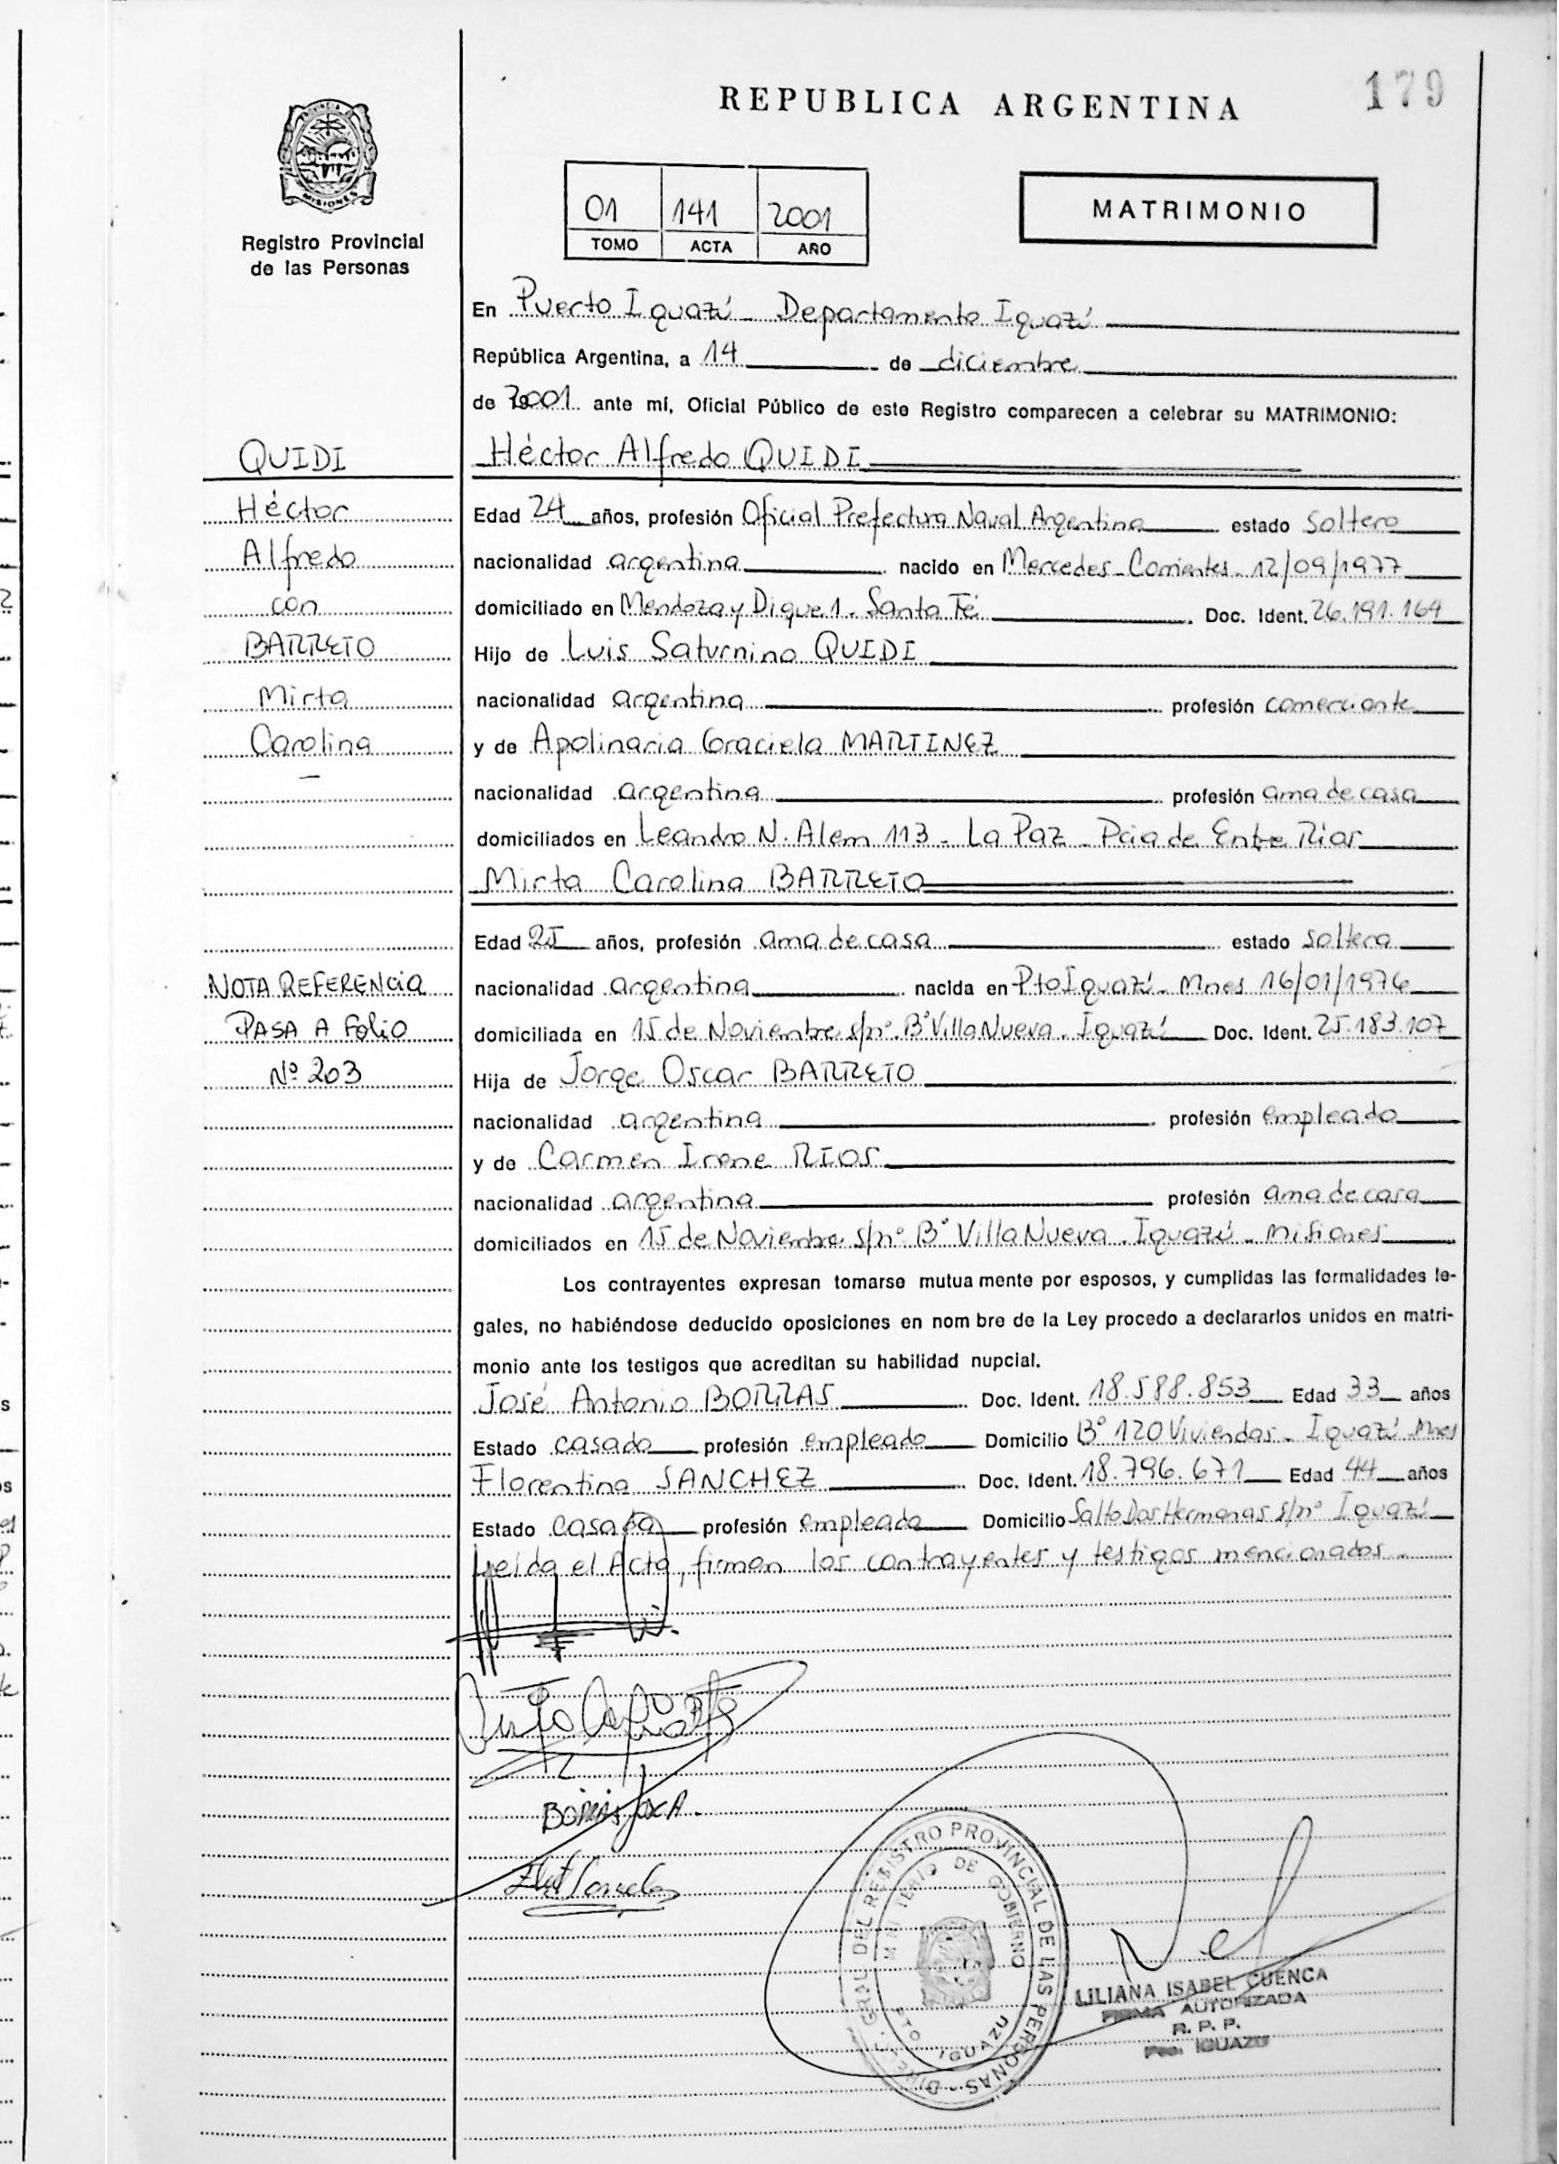 REPUBLICA ARGENTINA
179
MISIONES
Registro Provincial
de las Personas
01 141 2001
TOMO ACTA AÑO
MATRIMONIO
En Puerto Iguazú - Departamento Iguazú
República Argentina, a 14 de diciembre
de 2001 ante mí, Oficial Público de este Registro comparecen a celebrar su MATRIMONIO:
QUIDI
Héctor
Alfredo
con
BARRETO
Mirta
Carolina
Héctor Alfredo QUIDI
Edad 24 años, profesión Oficial Prefectura Naval Argentina estado soltero
nacionalidad argentina nacido en Mercedes - Corrientes - 12/09/1977
domiciliado en Mendoza y Dique 1 - Santa Fé Doc. Ident. 26.191.164
Hijo de Luis Saturnino QUIDI
nacionalidad argentina profesión comerciante
y de Apolinaria Graciela MARTINEZ
nacionalidad argentina profesión ama de casa
domiciliados en Leandro N. Alem 113 - La Paz - Pcia de Entre Ríos
Mirta Carolina BARRETO
Edad 25 años, profesión ama de casa estado soltera
NOTA REFERENCIA
PASA A FOLIO
Nº 203
nacionalidad argentina nacida en Pto Iguazú - Mnes 16/01/1976
domiciliada en 15 de Noviembre s/nº Bº Villa Nueva - Iguazú Doc. Ident. 25.183.107
Hija de Jorge Oscar BARRETO
nacionalidad argentina profesión empleado
y de Carmen Irene RIOS
nacionalidad argentina profesión ama de casa
domiciliados en 15 de Noviembre s/nº Bº Villa Nueva - Iguazú - Misiones
Los contrayentes expresan tomarse mutuamente por esposos, y cumplidas las formalidades le-
gales, no habiéndose deducido oposiciones en nom bre de la Ley procedo a declararlos unidos en matri-
monio ante los testigos que acreditan su habilidad nupcial.
José Antonio BORRAS Doc. Ident. 18.588.853 Edad 33 años
Estado casado profesión empleado Domicilio Bº 120 Viviendas - Iguazú - Mnes
Florentina SANCHEZ Doc. Ident. 18.796.671 Edad 44 años
Estado casada profesión empleada Domicilio Salto Dos Hermanas s/nº Iguazú
Leida el Acta, firman los contrayentes y testigos mencionados.-
DIREC. GRAL. DEL REGISTRO PROVINCIAL DE LAS PERSONAS
MINISTERIO DE GOBIERNO
PTO IGUAZU
LILIANA ISABEL CUENCA
FIRMA AUTORIZADA
R. P. P.
Pto. IGUAZU